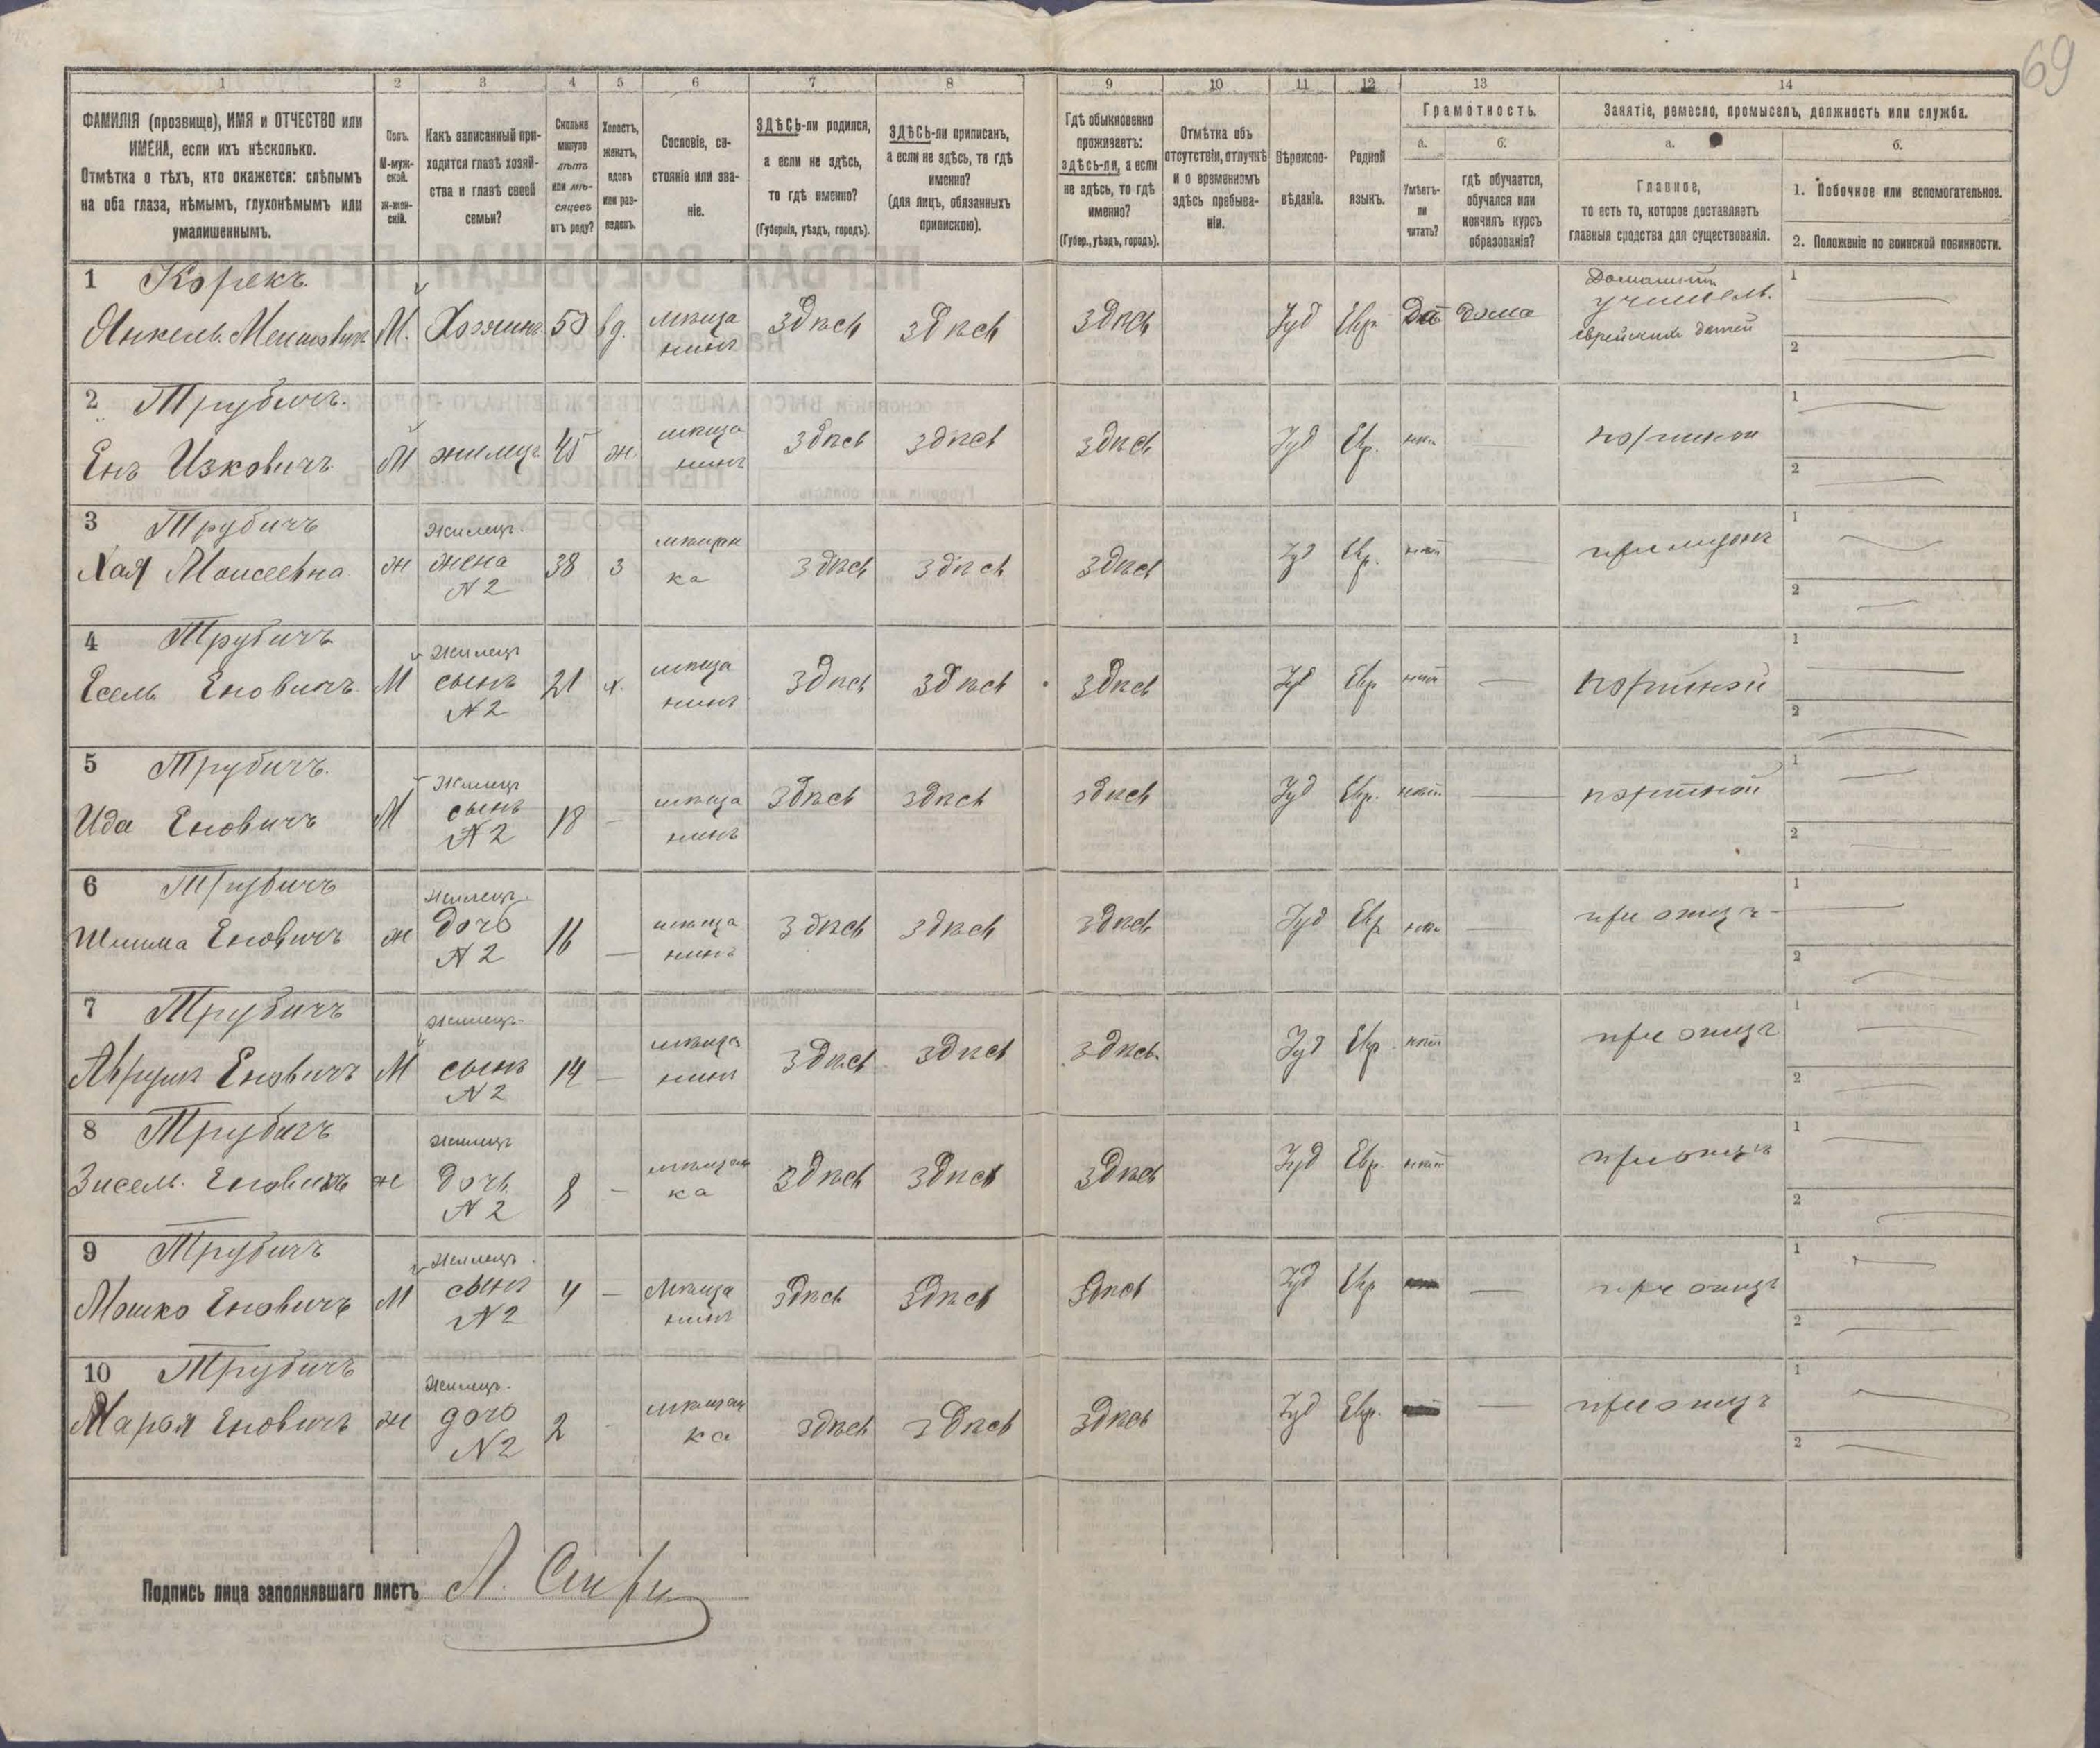 69
1 2 3 4 5 6 7 8 9 10 11 12 13 14
ФАМИЛІЯ (прозвище), ИМЯ и ОТЧЕСТВО или
ИМЕНА, если ихъ нѣсколько.
Отмѣтка о тѣхъ, кто окажется: слѣпымъ
на оба глаза, нѣмымъ, глухонѣмымъ или
умалишеннымъ.
Полъ.
М-муж-
ской.
ж-жен-
скій.
Какъ записанный при-
ходится главѣ хозяй-
ства и главѣ своей
семьи?
Сколько
минуло
лѣтъ
или мѣ-
сяцевъ
отъ роду?
Холостъ,
женатъ,
вдовъ
или раз-
веденъ.
Сословіе, со-
стояніе или зва-
ніе.
ЗДѢСЬ-ли родился,
а если не здѣсь,
то гдѣ именно?
(Губернія, уѣздъ, городъ).
ЗДѢСЬ-ли приписанъ,
а если не здѣсь, то гдѣ
именно?
(для лицъ, обязанныхъ
припискою).
Гдѣ обыкновенно
проживаетъ:
здѣсь-ли, а если
не здѣсь, то гдѣ
именно?
(Губер., уѣздъ, городъ).
Отмѣтка объ
отсутствіи, отлучкѣ
и о временномъ
здѣсь пребыва-
ніи.
Вѣроиспо-
вѣданіе.
Родной
языкъ.
Грамотность.
а.
Умѣетъ-
ли
читать?
б.
гдѣ обучается,
обучался или
кончилъ курсъ
образованія?
Занятіе, ремесло, промыселъ, должность или служба.
а.
Главное,
то есть то, которое доставляетъ
главныя средства для существованія.
б.
1. Побочное или вспомогательное.
2. Положеніе по воинской повинности.
1 Корекъ.
Янкель М. Хозяинъ 53 вд. мѣща здѣсь здѣсь здѣсь Іуд Евр Да дома
нинъ
Домашній
учитель.
еврейскихъ детей
1
2
2 Трубичъ.
Енъ Изковичъ М жилецъ 45 ж мѣща здѣсь здѣсь здѣсь Іуд Евр. портной
нинъ
1
2
3 Трубичъ
Жилецъ.
Хая Моисеевна ж жена 38 з мѣщан здѣсь здѣсь здѣсь Іуд Евр. нѣтъ
N 2 ка
1
2
4 Трубичъ
Жилецъ
Есель Еновичъ М сынъ 21 х. мѣща здѣсь здѣсь здѣсь Іуд Евр нѣтъ портной
N 2 нинъ
1
2
5 Трубичъ.
Жилецъ
Ида Еновичъ М сынъ 18 мѣща здѣсь здѣсь здѣсь Іуд Евр. нѣтъ портной
N 2 нинъ
1
2
6 Трубичъ
Жилецъ
Еновичъ ж дочь 16 мѣща здѣсь здѣсь здѣсь Іуд Евр при отцѣ
N 2 нинъ
1
2
7 Трубичъ
Жилецъ
Еновичъ М сынъ 14 мѣща здѣсь здѣсь здѣсь Іуд Евр. нѣтъ при отцѣ
N 2 нинъ
1
2
8 Трубичъ
Жилецъ
Зисель Еновичъ ж дочь 8 мѣщан здѣсь здѣсь здѣсь Іуд Евр. нѣтъ при отцѣ
N 2 ка
1
2
9 Трубичъ
Жилецъ.
Мошко Еновичъ М сынъ 4 мѣща здѣсь здѣсь здѣсь Іуд Евр при отцѣ
N 2 нинъ
1
2
10 Трубичъ
Жилецъ.
Марья Еновичъ ж дочь 2 мѣщан здѣсь здѣсь здѣсь Іуд Евр. при отцѣ
N 2 ка
1
2
Подпись лица заполнявшаго листъ